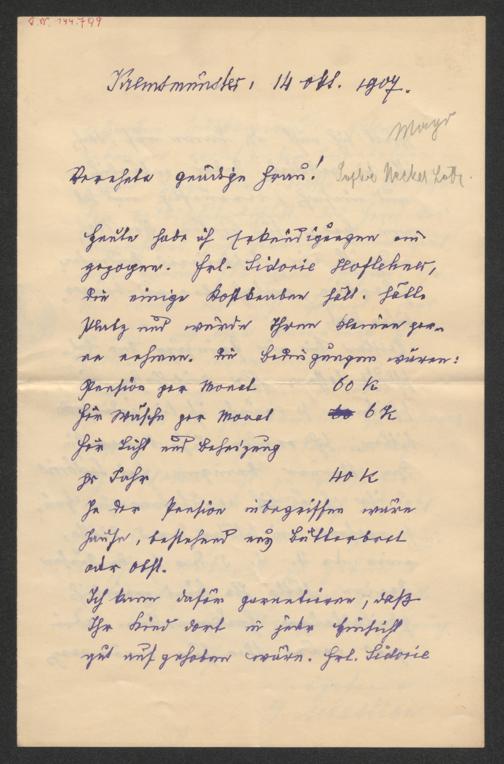 I.N. 144.799
Kremsmünster, 14 Okt. 1907.
Mayr
Verehrte gnädige Frau!
Sophie
Heute habe ich Erkundigungen ein
gezogen. Frl. Sidonie Hoflehner,
die einige Kostknaben hält, hätte
Platz und würde Ihren Kleinen ger-
ne nehmen. Die Bedingungen wären:
Pension per Monat 60 K
Für Wäsche per Monat 6 K
Für Licht und Beheizung
pr Jahr 40 K
In der Pension inbegriffen wäre
Jause, bestehend aus Butterbrot
oder Obst.
Ich kann dafür garantieren, daß
Ihr Kind dort in jeder Hinsicht
gut aufgehoben wäre. Frl. Sidonie